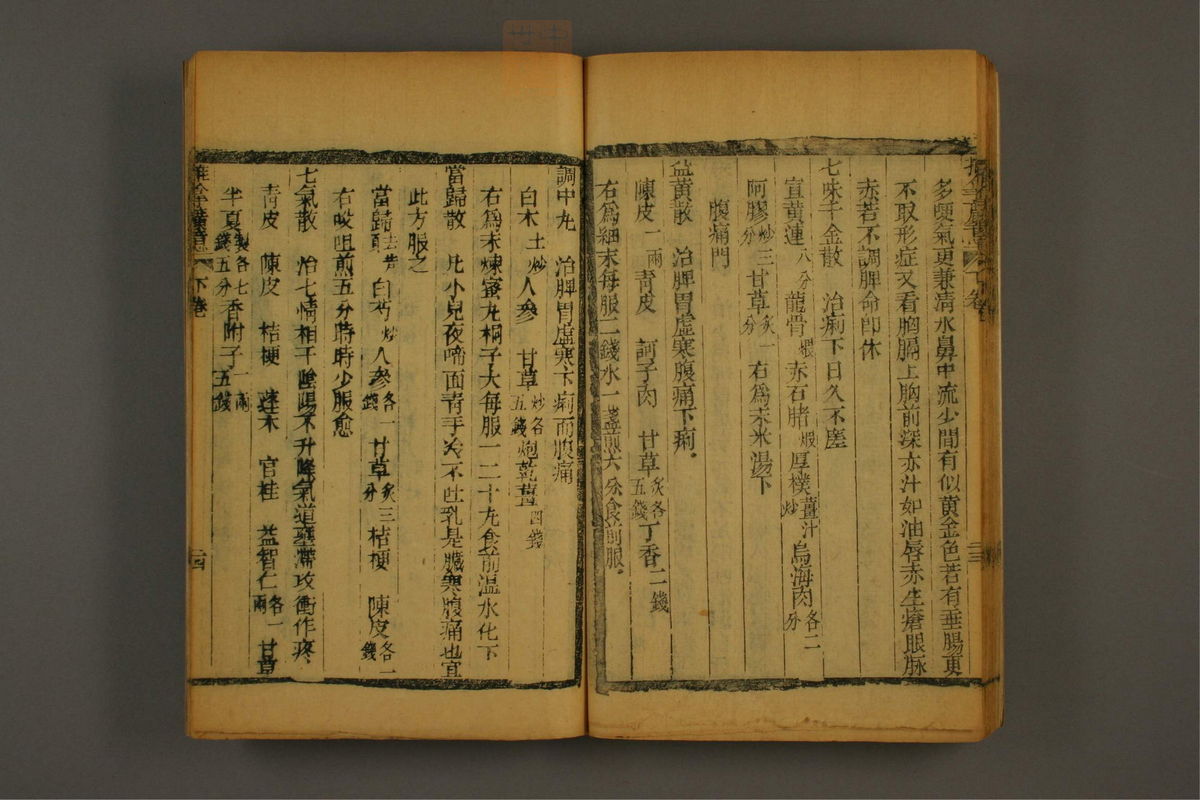 多便氣更兼清水鼻中流少間有似黄金色若有垂腸更
不取形症又看胸膈上胸前深赤汁如油唇赤生瘡眼脉
赤若不調脾命卽休
七味千金散 治痢下日久不瘥
宣黄連八分龍骨煨赤石脂煅厚樸薑汁炒烏海肉各二分
阿膠炒三分甘草炙一分右爲末米湯下
腹痛門
益黄散 治脾胃虛寒腹痛下痢
陳皮一兩青皮 訶子肉 甘草炙各五錢丁香二錢
右爲細末每服二錢水一盞煎六分食前服
調中丸 治脾胃虛寒下痢而腹痛
白木土炒人參 甘草炒各五錢炮乾薑四錢
右爲末煉蜜丸桐子大每服一二十丸食前温水化下
當歸散 凡小兒夜啼面青手冷不吐乳是臟寒腹痛也宜
此方服之
當歸去苦白芍炒人參各一錢甘草炙三分桔梗 陳皮各一錢
右㕮咀煎五分時時少服愈
七氣散 治七情相干陰陽不升降氣道壅滯攻衝作疼
青皮 陳皮 桔梗 蓬木 官桂 益智仁各一兩甘草
半夏製各七錢五分香附子一兩五錢
推拿廣意 下卷 二四